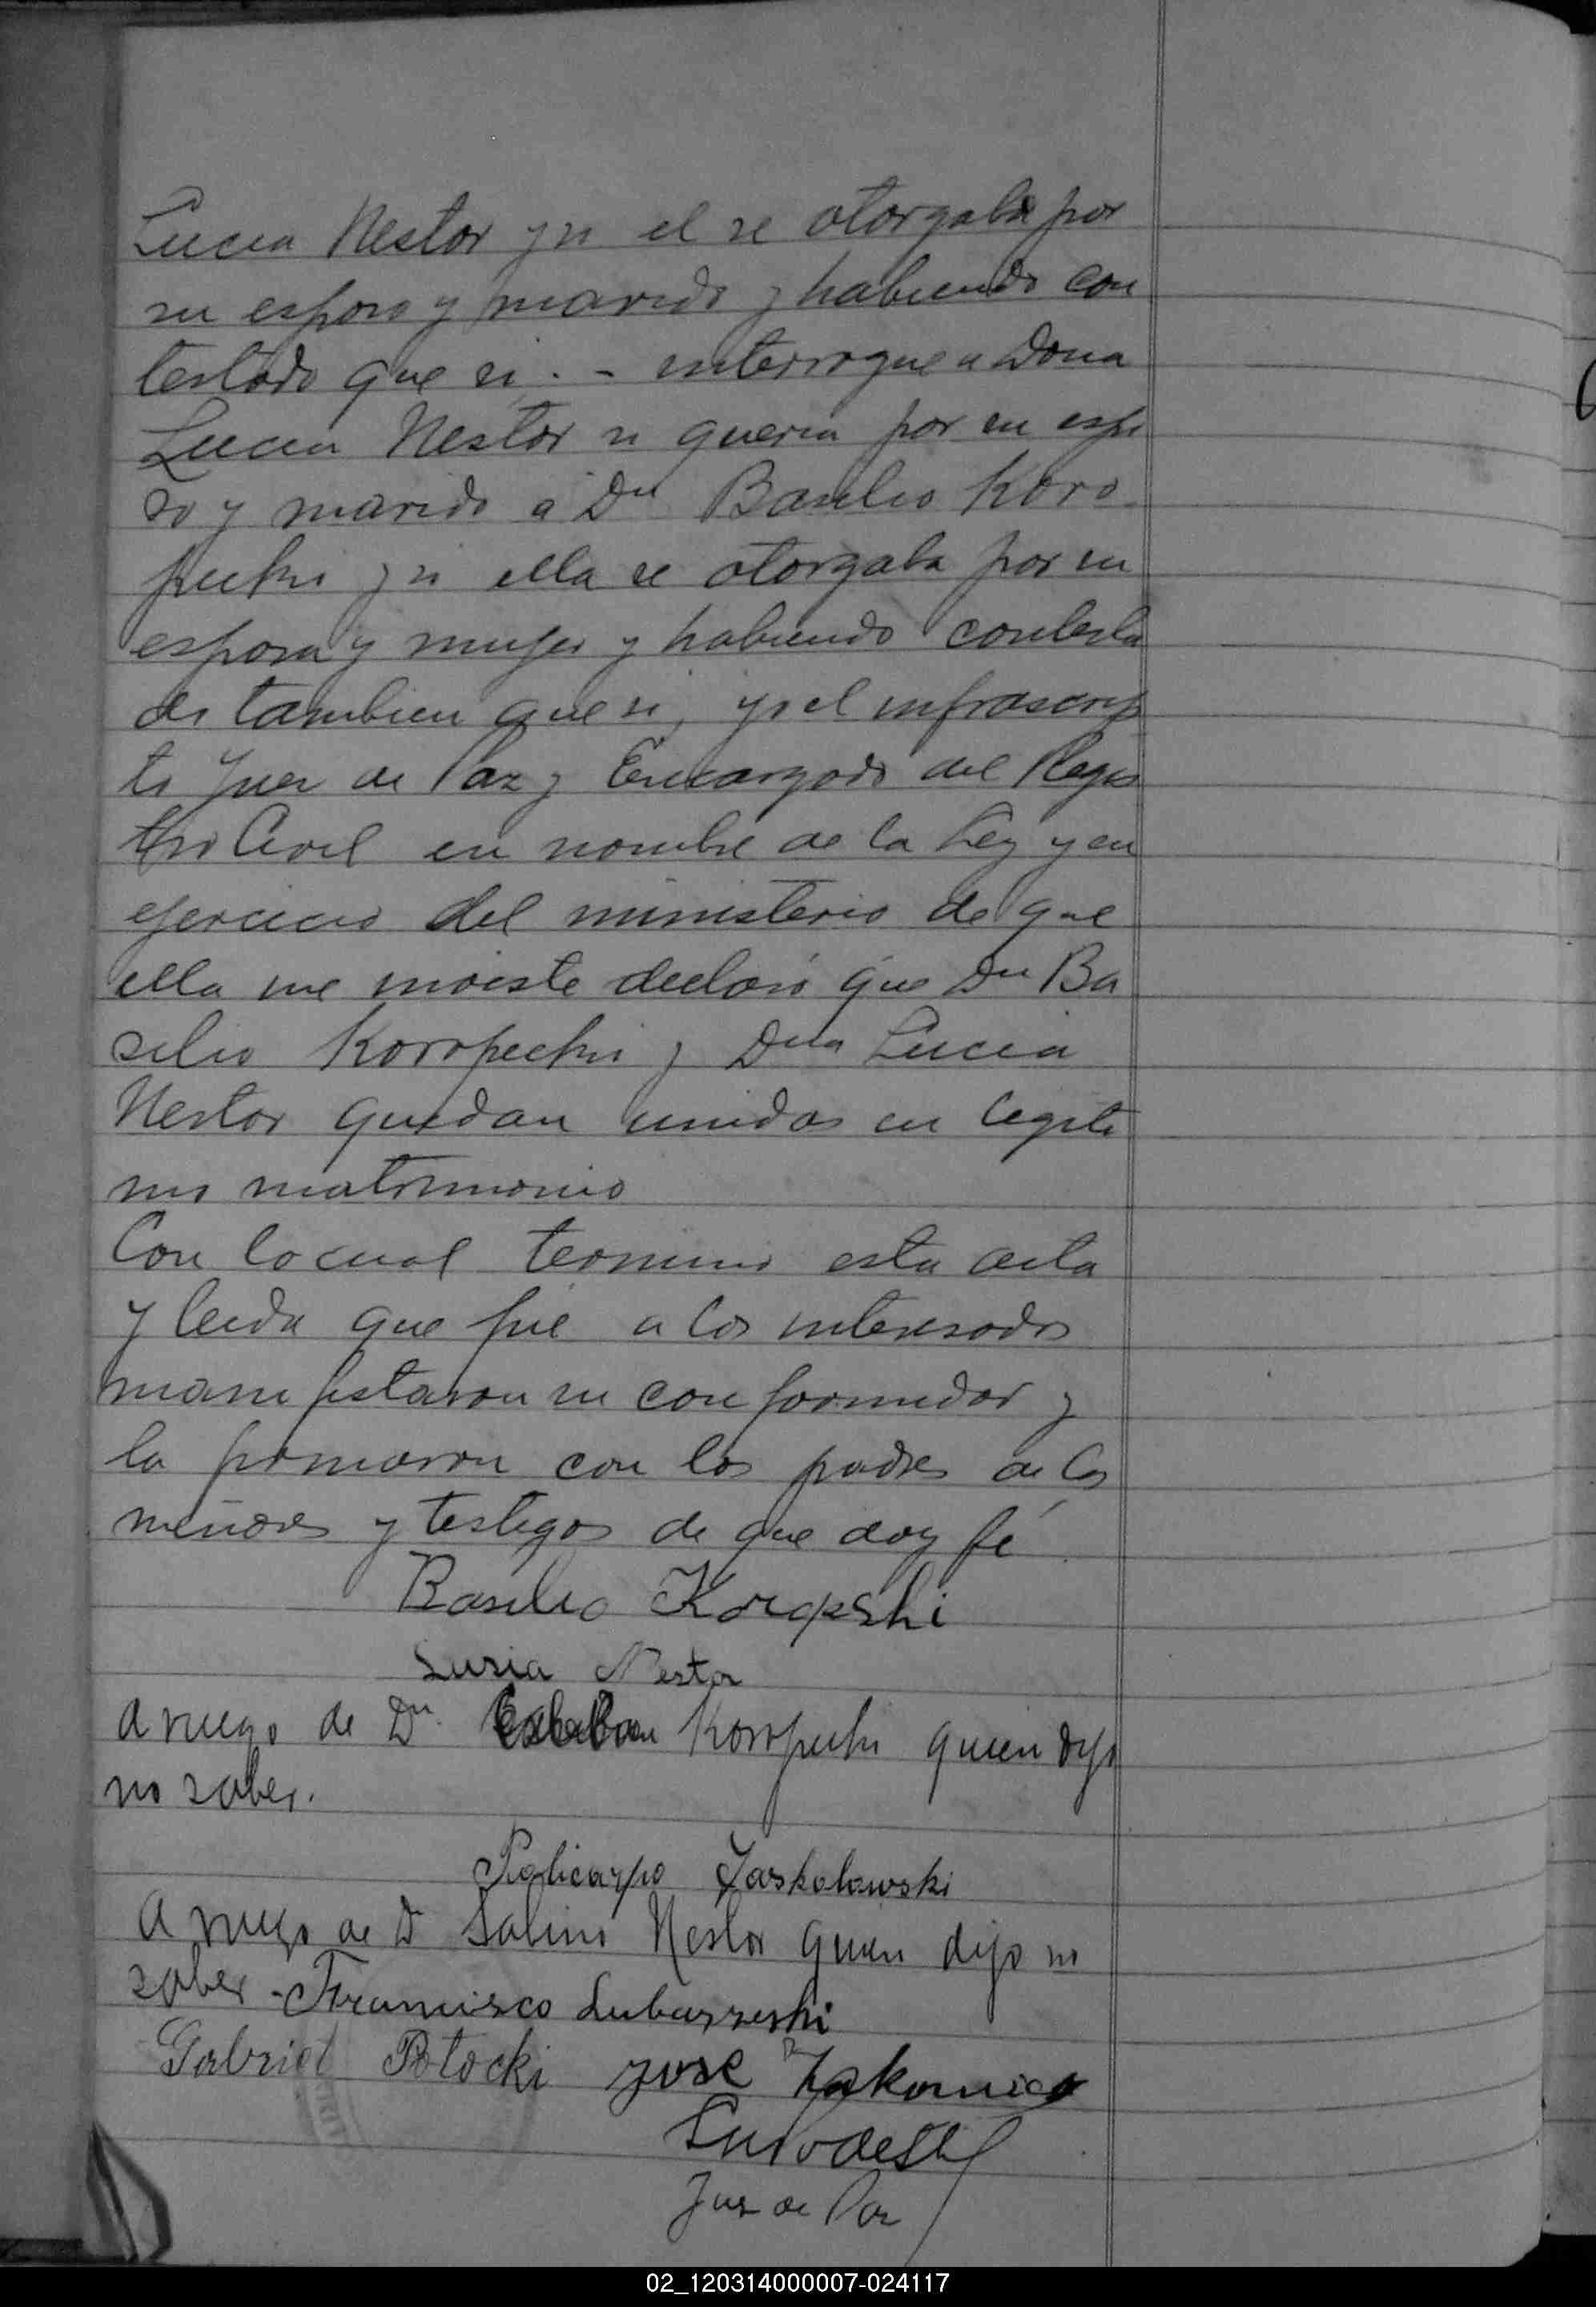 Lucia Nestor y si el se otorgaba por
su esposo y marido y habiendo con
testado que si. - interrogue a Dona
Lucia Nestor si queria por su espo
so y marido a Dn Basilio Koro
pecki y si ella se otorgaba por su
esposa y mujer y habiendo contesta
do tambien que si, yo el infrascrip
to Juez de Paz y Encargado del Regis
tro Civil en nombre de la Ley y en
ejercicio del ministerio de que
ella me inviste declaró que Dn Ba
silio Koropecki y Dña Lucia
Nestor quedan unidos en legiti
mo matrimonio
Con lo cual termino esta acta
y leida que fue a los interesados
manifestaron su conformidad y
la firmaron con los padres de los
menores y testigos de que doy fé
Basilio Koropeski
Lusia Nestor
A ruego de Dn Esteban Koropecki quien dijo
no saber.
Policarpo Jaskolowski
A ruego de D Sabino Nestor quien dijo no
saber - Francisco
Gabriel Potocki José
Juez de Paz
02_120314000007-024117